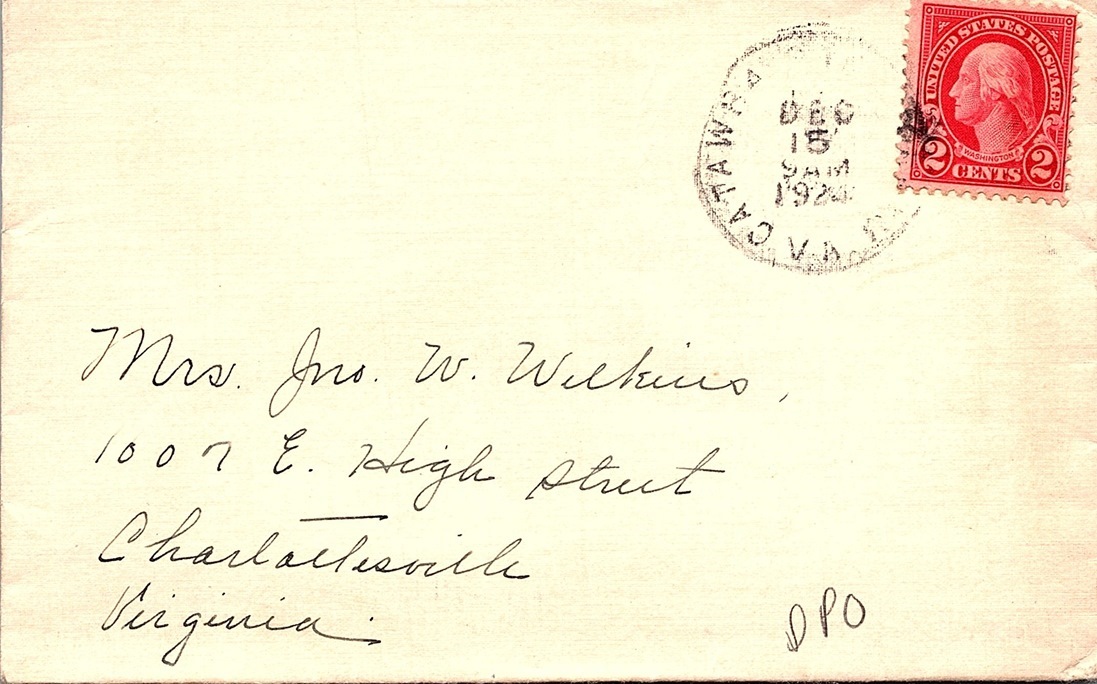 UNITED STATES POSTAGE
WASHINGTON
2 CENTS 2
CATAWBA
VA
DEC
9 AM
Mrs. Jno. W. Wilkins,
1007 E. High Street
Charlottesville
Virginia.
DPO